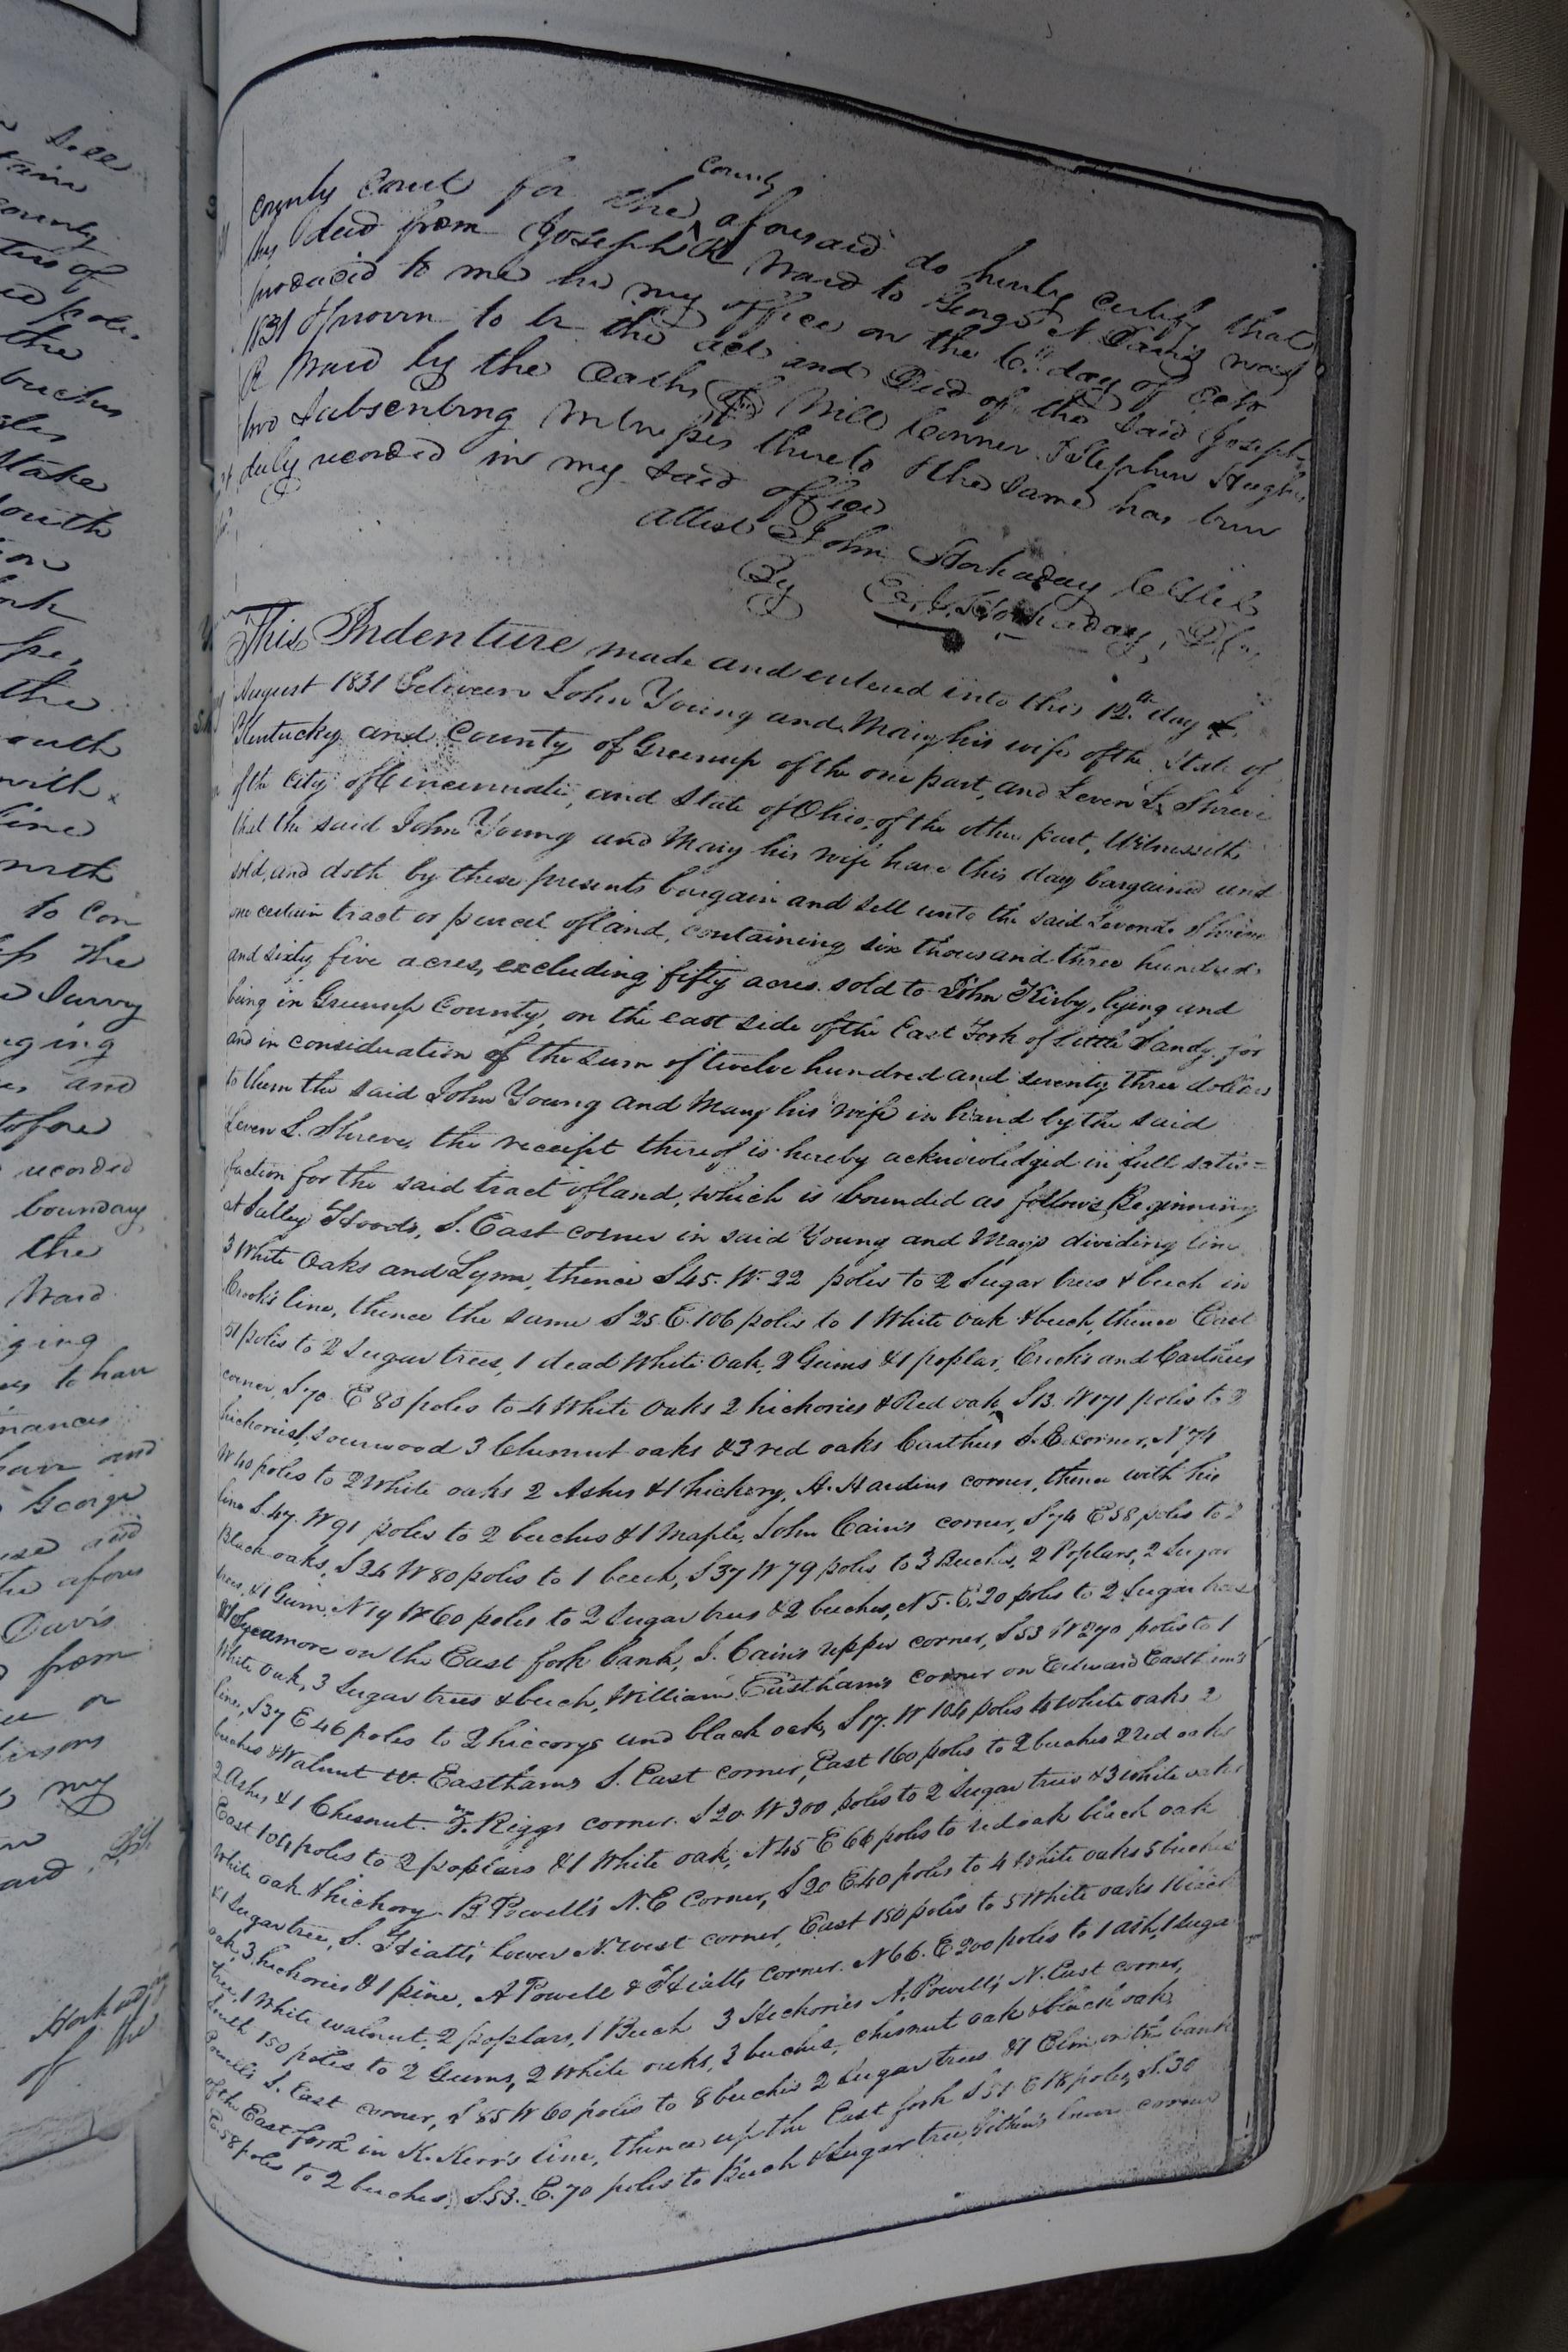 sell
tain
county
the
Stake
South
the
south
with
line
north
to Con
the
Survey
and
recorded
boundary
the
Ward
to have
have and
George
and
Davis
from
or
my
of the
county
County Court for the aforesaid do hereby certify that
this deed from Joseph R Ward to George N. Davis was
produced to me in my office on the 6th day of Octr
1831 & proven to be the act and Deed of the said Joseph
R Ward by the Oaths of Will Conner & Stephen Hughes
two Subscribing Witnesses thereto & the same has been
duly recorded in my said office
Attest John Hockaday Clk
By Hockaday, D
This Indenture made and entered into this 12th day of
August 1831 Between John Young and Mary his wife of the State of
Kentucky and County of Greenup of the one part, and Leven L Shreve
of the City of Cincinnati, and State of Ohio, of the other part, Witnesseth
that the said John Young and Mary his wife have this day bargained and
sold, and doth by these presents bargain and sell unto the said Leven L. Shreve
one certain tract or parcel of land, containing six thousand three hundred
and sixty five acres, excluding fifty acres sold to John Kirby, lying and
being in Greenup County, on the east side of the East Fork of Little Sandy, for
and in consideration of the sum of twelve hundred and seventy three dollars
to them the said John Young and Mary his wife in hand by the said
Leven L. Shreve, the receipt thereof is hereby acknowledged in full satis=
faction for the said tract of land, which is bounded as follows, Beginning
at Salley Hoods, S. East corner in said Young and Mays dividing line
3 White Oaks and Lynn, thence S 45. W. 22 poles to 2 Sugar trees & beech in
Crook's line, thence the same S 25 E. 106 poles to 1 White Oak & beech, thence East
51 poles to 2 Sugar trees, 1 dead White Oak, 2 Gums & 1 poplar, Crook's and
corner, S 70. E 80 poles to 4 White Oaks 2 hickories & Red oak, S 13. W 171 poles to 2
hickories, sourwood 3 Chesnut oaks & 3 red oaks S. E. corner, N 74
W 40 poles to 2 White oaks 2 Ashes & 1 hickory, A. Hardins corner, thence with his
line S. 47. W 91 poles to 2 beeches & 1 Maple, John Cain's corner, S 74 E 58 poles to 2
Black oaks, S 26 W 80 poles to 1 beech, S 37 W 79 poles to 3 Beeches, 2 Poplars, 2 Sugar
trees, & 1 Gum, N 19 W 60 poles to 2 Sugar trees & 2 beeches, N 5. E. 20 poles to 2 Sugar trees
& Sycamore on the East fork bank, J. Cain's upper corner, S 53 W 270 poles to 1
White Oak, 3 Sugar trees & beech, William Eastham's corner on Edward Eastham's
line, S 37 E 46 poles to 2 hiccorys and black oak, S 17. W 104 poles to White oaks 2
beeches & Walnut W. Easthams S. East corner, East 160 poles to 2 beeches 2 red oaks
2 Ashes & 1 Chesnut. Riggs corner. S 20. W 300 poles to 2 Sugar trees & 3 White oaks
East 104 poles to 2 poplars & 1 White oak, N 45 E 66 poles to red oak black oak
White oak & hickory B. Powell's N. E Corner, S 20 E 40 poles to 4 White oaks 5 beeches
& 1 Sugar tree, S. Hiatt's lower N. West corner, East 150 poles to 5 White oaks 1 black
oak, 3 hickories & 1 pine, A Powell & Hiatts corner. N 66. E 200 poles to 1 ash, 1 Sugar
tree, 1 White walnut, 2 poplars, 1 Beech 3 Hickories A. Powell's N. East corner,
South 150 poles to 2 Gums, 2 White oaks, 3 beeches, chesnut oak & black oak,
Powell's S. East corner, S 85 W 60 poles to 8 beeches 2 Sugar trees & 1 Elm on the bank
of the East fork in K. Kerr's line, thence up the East fork S 51 E 18 poles, S. 30
E. 58 poles to 2 beeches, S. 53. E. 70 poles to Beech & Sugar tree lower corner